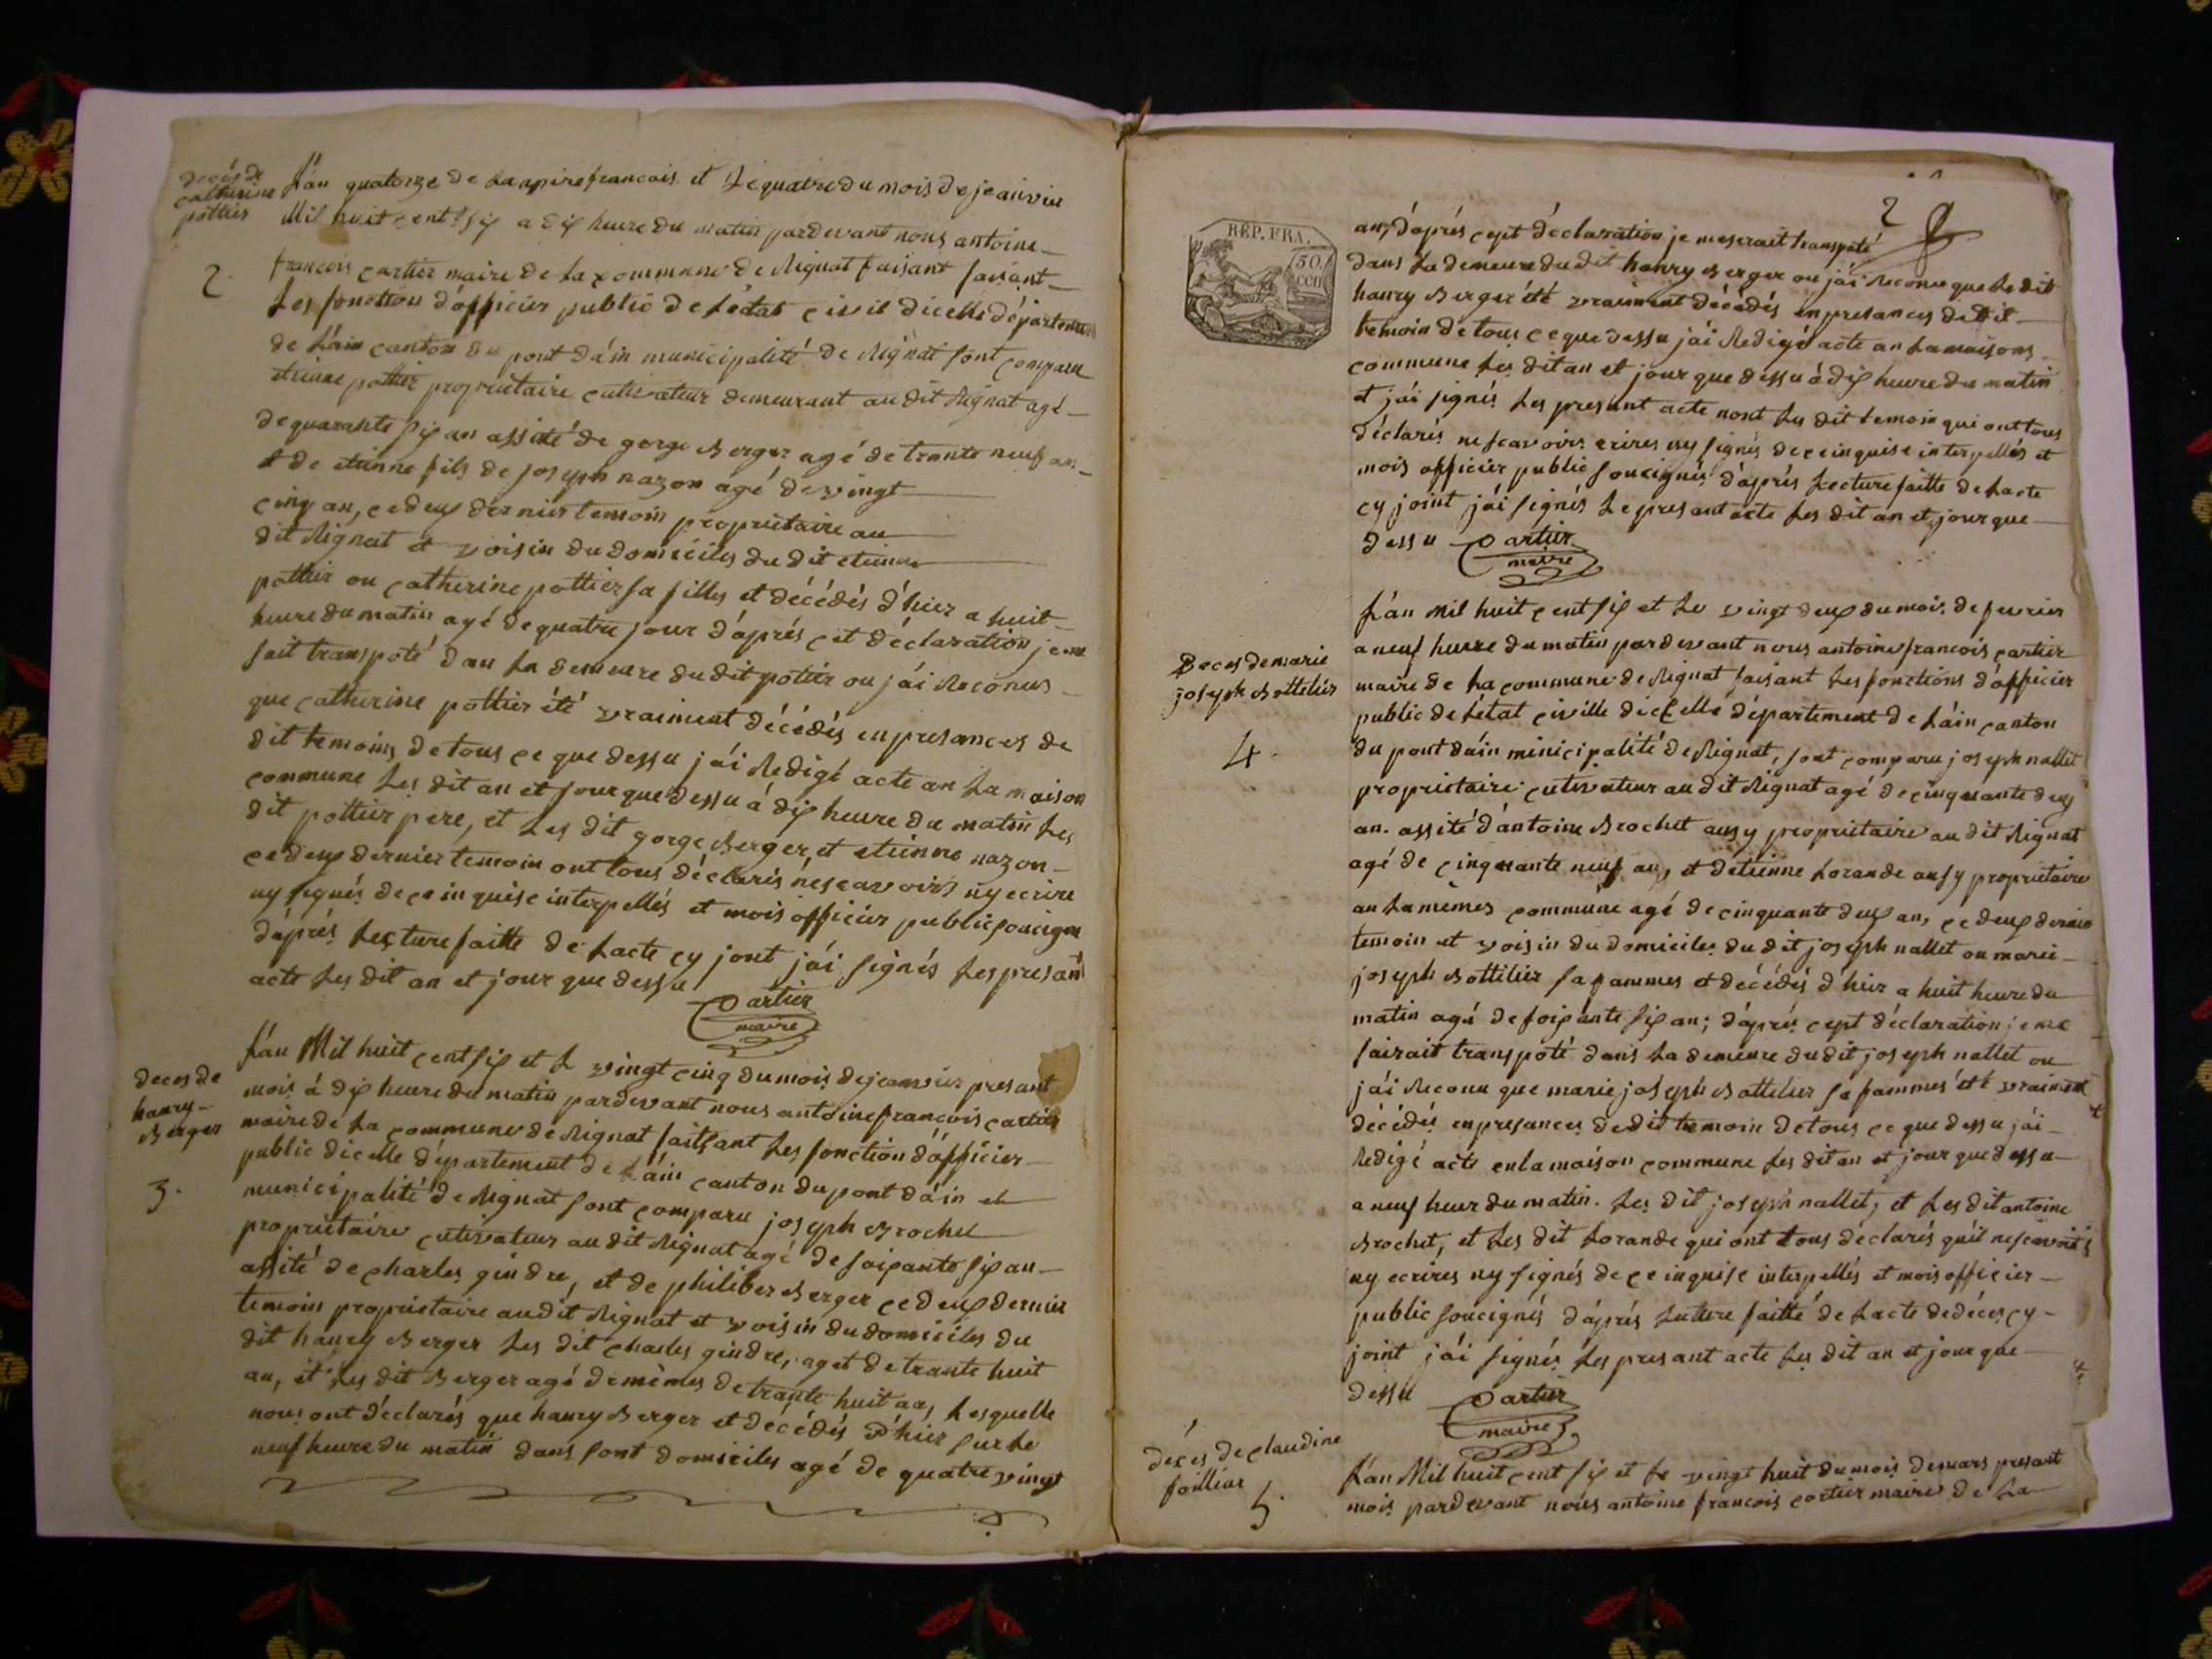 decés de
catherine
pottier
2.
L'an quatorze de Lanpire francais et Le quatre du mois de jeanvier
Mil huit cent six a dix heure du matin pardevant nous antoine
francois cartier maire de La commune de Rignat faisant faisant
Les fonction d'officier public de Letat civil dicelle département
de Láin canton du pont dáin municipalité de Rignat sont comparu
etienne pottier propriétaire cutivateur demeurant au dit Rignat agé
de quarante six an assité de gorge Berger agé de trante neuf an
et de etienne fils de joseph nazon agé de vingt
cinq an, ce deux dernier temoin propriétaire au
dit Rignat et voisin du domiciles du dit etienne
pottier ou catherine pottier sa filles et décédés d'hier a huit
heure du matin agé de quatre jour d'aprés cet déclaration je me
sait transpoté dan La demeure du dit potier ou j'ái Reconus
que catherine pottier été vraiment décédés en presances de
dit temoins, de tous ce que dessu jái Redigé acte an La maison
commune Les dit an et jour que dessu á dix heure du matin Les
dit pottier pere, et Les dit gorge Berger, et etienne nazon
ce deux dernier temoin ont tous déclarés nescavoirs ny ecrire
ny signés de ce inquise interpellés et mois officier public soucigné
d'aprés Lecture faitte de Lacte cy jont jái signés Les presant
acte Les dit an et jour que dessu
Cartier
maire
deces de
hanry
Berger
3.
L'an Mil huit cent six et L vingt cinq du mois dejeanvier presant
mois á dix heure du matin pardevant nous antoine francois cartier
maire de La commune de Rignat faitsant Les fonction d'officier
public dicelle département de Láin canton du pont dáin et
municipalité de Rignat sont comparu joseph Brochet
propriétaire cutivateur au dit Rignat agé de soixante six an
assité de charles gindre, et de philiber Berger ce deux dernier
temoin propriétaire audit Rignat et voisin du domiciles du
dit hanry Berger Les dit charles gindre, aget de trante huit
an, et Les dit Berger agé de mèmes de trante huit an, Lesquelle
nous ont déclarés que hanry Berger et décédés d'hier sur Le
neuf heure du matin dans sont domiciles agé de quatre vingt
2
RÉP. FRA.
50
cen
an, d'aprés cept déclaration je me serait transpoté
dans La demeure du dit hanry Berger ou jái Reconu que Le dit
hanry Berger été vraiment décédés en presances de dit
temoin de tous ce que dessu jái Redigé acte an La maisons
commune Les dit an et jour que dessu á dix heure du matin
et jái signés Les presant acte nont Les dit temoin qui ont tous
déclarés nescavoirs ecrires ny signés de ce inquise interpellés et
mois officier public soucignés d'aprés Lecture faitte de Lacte
cy joint jái signés Le presant acte Les dit an et jour que
dessu
Cartier
maire
Deces de marie
joseph Bottelier
4.
L'an Mil huit cent six et Le vingt deux du mois de fevrier
a neuf heure du matin pardevant nous antoine francois cartier
maire de La commune de Rignat faisant Les fonctions d'officier
public de Létat civille dicelle département de Láin canton
du pont dáin minicipalité de Rignat, sont comparu joseph nallet
propriétaire cutivateur au dit Rignat agé de cinquante deux
an. assité d'antoine Brochet ausy propriétaire au dit Rignat
agé de cinquante neuf an, et d'etienne Lorande ausy propriétaire
an La mèmes commune agé de cinquante deux an, ce deux dernier
temoin et voisin du domiciles du dit joseph nallet ou marie
joseph Bottelier sa fammes et décédés d'hier a huit heure du
matin agé de soixante six an; d'aprés cept déclaration je me
sairait transpoté dans La demeure du dit joseph nallet ou
jái Reconu que marie joseph Bottelier sa fammes été vraiment
décédés en presances de dit temoin de tous ce que dessu jái
Redigé acte en la maison commune Les dit an et jour que dessu
a neuf heur du matin. Les dit joseph nallet, et Les dit antoine
Brochet, et Les dit Lorande qui ont tous déclarés quil nescavoirs
ny ecrires ny signés de ce inquise interpellés et mois officier
public soucignés d'aprés Luture faitte de Lacte de déces, cy
joint jái signés Les presant acte Les dit an et jour que
dessu
Cartier
maire
déces de claudine
5.
L'an Mil huit cent six et Le vingt huit du mois de mars presant
mois pardevant nous antoine francois cartier maire de La